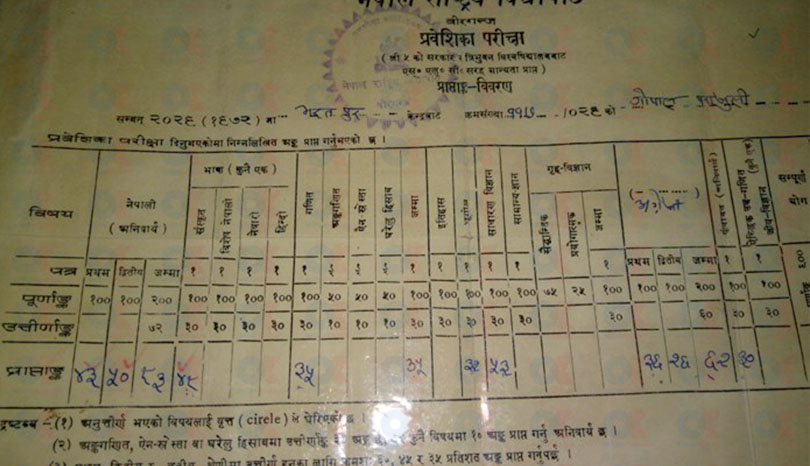 नेपाल राष्ट्रिय विद्यापीठ
वीरगञ्ज
प्रवेशिका परीक्षा
( श्री ५ को सरकार र त्रिभुवन विश्वविद्यालयबाट
एस॰ एल॰ सी॰ सरह मान्यता प्राप्त )
प्राप्ताङ्क-विवरण
सम्बत् २०२९ (१९७२) मा भरतपुर केन्द्रबाट क्रमसंख्या /०२९ को गोपाल
प्रवेशिका परीक्षा दिनुभएकोमा निम्नलिखित अङ्क प्राप्त गर्नुभएको छ ।
विषय नेपाली (अनिवार्य) भाषा ( कुनै एक ) संस्कृत विशेष नेपाली नेवारी हिन्दी गणित अङ्कगणित ऐन स्रेस्ता घरेलु हिसाब जम्मा इतिहास भूगोल साधारण विज्ञान सामान्य-ज्ञान गृह-विज्ञान सैद्धान्तिक प्रयोगात्मक जम्मा सम्पूर्ण योग
पत्र प्रथम द्वितीय जम्मा १ १ १ १ १ १ १ १ १ १ १ १ १ प्रथम द्वितीय जम्मा १ १
पूर्णाङ्क १०० १०० २०० १०० १०० १०० १०० १०० ५० ५० ५० १०० १०० १०० १०० १०० ७५ २५ १०० १०० १०० २०० १०० १००
उत्तीर्णाङ्क ७२ ३० ३० ३० ३० ३० १० १० १० ३० ३० ३० ३० ३० ३० ६० ३० ३०
प्राप्ताङ्क ४३ ५० ९३ ४९ ३५ ३५ ३२ ५३ ३६ २६ ६२ ३०
द्रष्टब्य -(१) अनुत्तीर्ण भएको विषयलाई वृत्त (cirele) ले घेरिएको छ ।
(२) अङ्कगणित, ऐन-स्रेस्ता वा घरेलु हिसाबमा उत्तीर्णाङ्क ३० कुनै विषयमा १० अङ्क प्राप्त गर्नु अनिवार्य छ ।
उत्तीर्ण हुनका लागि क्रमशः ६०, ४५ र ३५ प्रतिशत अङ्क प्राप्त गर्नुपर्छ ।